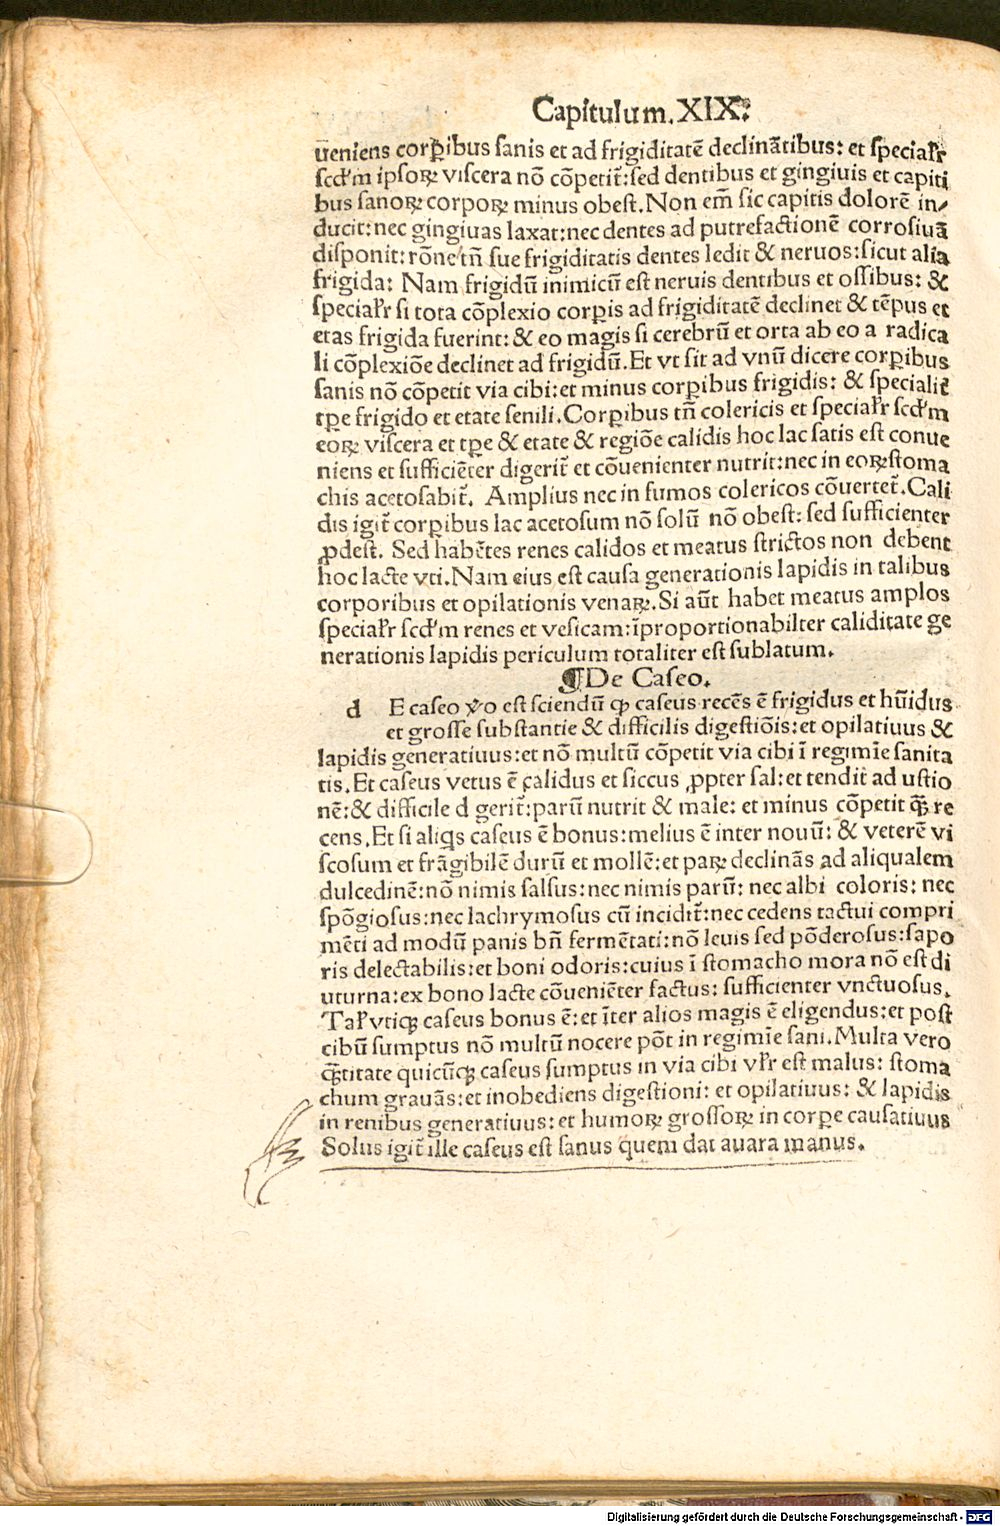 Capitulum. XIX.
ueniens corꝑibus sanis et ad frigiditatē declinātibus: et specialr̄
scd'm ipsoꝝ viscera nō cōpetit̄: sed dentibus et gingiuis et capiti
bus sanoꝝ corpoꝝ minus obest. Non em̄ sic capitis dolorē in⸗
ducit: nec gingiuas laxat: nec dentes ad putrefactionē corrosiuā
disponit: rōne tn̄ sue frigiditatis dentes ledit & neruos: sicut alia
frigida: Nam frigidū inimicū est neruis dentibus et ossibus: &
specialr̄ si tota cōplexio corꝑis ad frigiditatē declinet & tēpus et
etas frigida fuerint: & eo magis si cerebrū et orta ab eo a radica
li cōplexiōe declinet ad frigidū. Et vt sit ad vnū dicere corꝑibus
sanis nō cōpetit via cibi: et minus corꝑibus frigidis: & specialit̄
tꝑe frigido et etate senili. Corꝑibus tn̄ colericis et specialr̄ scd'm
eoꝝ viscera et tꝑe & etate & regiōe calidis hoc lac satis est conue
niens et sufficiēter digerit̄ et cōuenienter nutrit: nec in eoꝝ stoma
chis acetosabit̄. Amplius nec in fumos colericos cōuertet̄. Cali
dis igit̄ corꝑibus lac acetosum nō solū nō obest: sed sufficienter
ꝓdest. Sed habētes renes calidos et meatus strictos non debent
hoc lacte vti. Nam eius est causa generationis lapidis in talibus
corporibus et opilationis venaꝝ. Si aūt habet meatus amplos
specialr̄ scd'm renes et vesicam: īproportionabilter caliditate ge
nerationis lapidis periculum totaliter est sublatum.
¶ De Caseo.
d E caseo v̄o est sciendū ꝙ caseus recēs ē frigidus et hūidus
et grosse substantie & difficilis digestiōis: et opilatiuus &
lapidis generatiuus: et nō multū cōpetit via cibi ī regimīe sanita
tis. Et caseus vetus ē calidus et siccus ꝓpter sal: et tendit ad ustio
nē: & difficile d gerit̄: parū nutrit & male: et minus cōpetit ꝙ̄ re
cens. Et si aliqs caseus ē bonus: melius ē inter nouū: & veterē vi
scosum et frāgibilē durū et mollē: et paꝝ declinās ad aliqualem
dulcedinē: nō nimis salsus: nec nimis parū: nec albi coloris: nec
spōgiosus: nec lachrymosus cū incidit̄: nec cedens tactui compri
mēti ad modū panis bn̄ fermētati: nō leuis sed pōderosus: sapo
ris delectabilis: et boni odoris: cuius ī stomacho mora nō est di
uturna: ex bono lacte cōueniēter factus: sufficienter vnctuosus.
Talr̄ vtiqꝫ caseus bonus ē: et īter alios magis ē eligendus: et post
cibū sumptus nō multū nocere pōt in regimīe sani. Multa vero
q̄titate quicūqꝫ caseus sumptus in via cibi vlr̄ est malus: stoma
chum grauās: et inobediens digestioni: et opilatiuus: & lapidis
in renibus generatiuus: et humoꝝ grossoꝝ in corꝑe causatiuus
Solus igit̄ ille caseus est sanus quem dat auara manus.
Digitalisierung gefördert durch die Deutsche Forschungsgemeinschaft - DFG